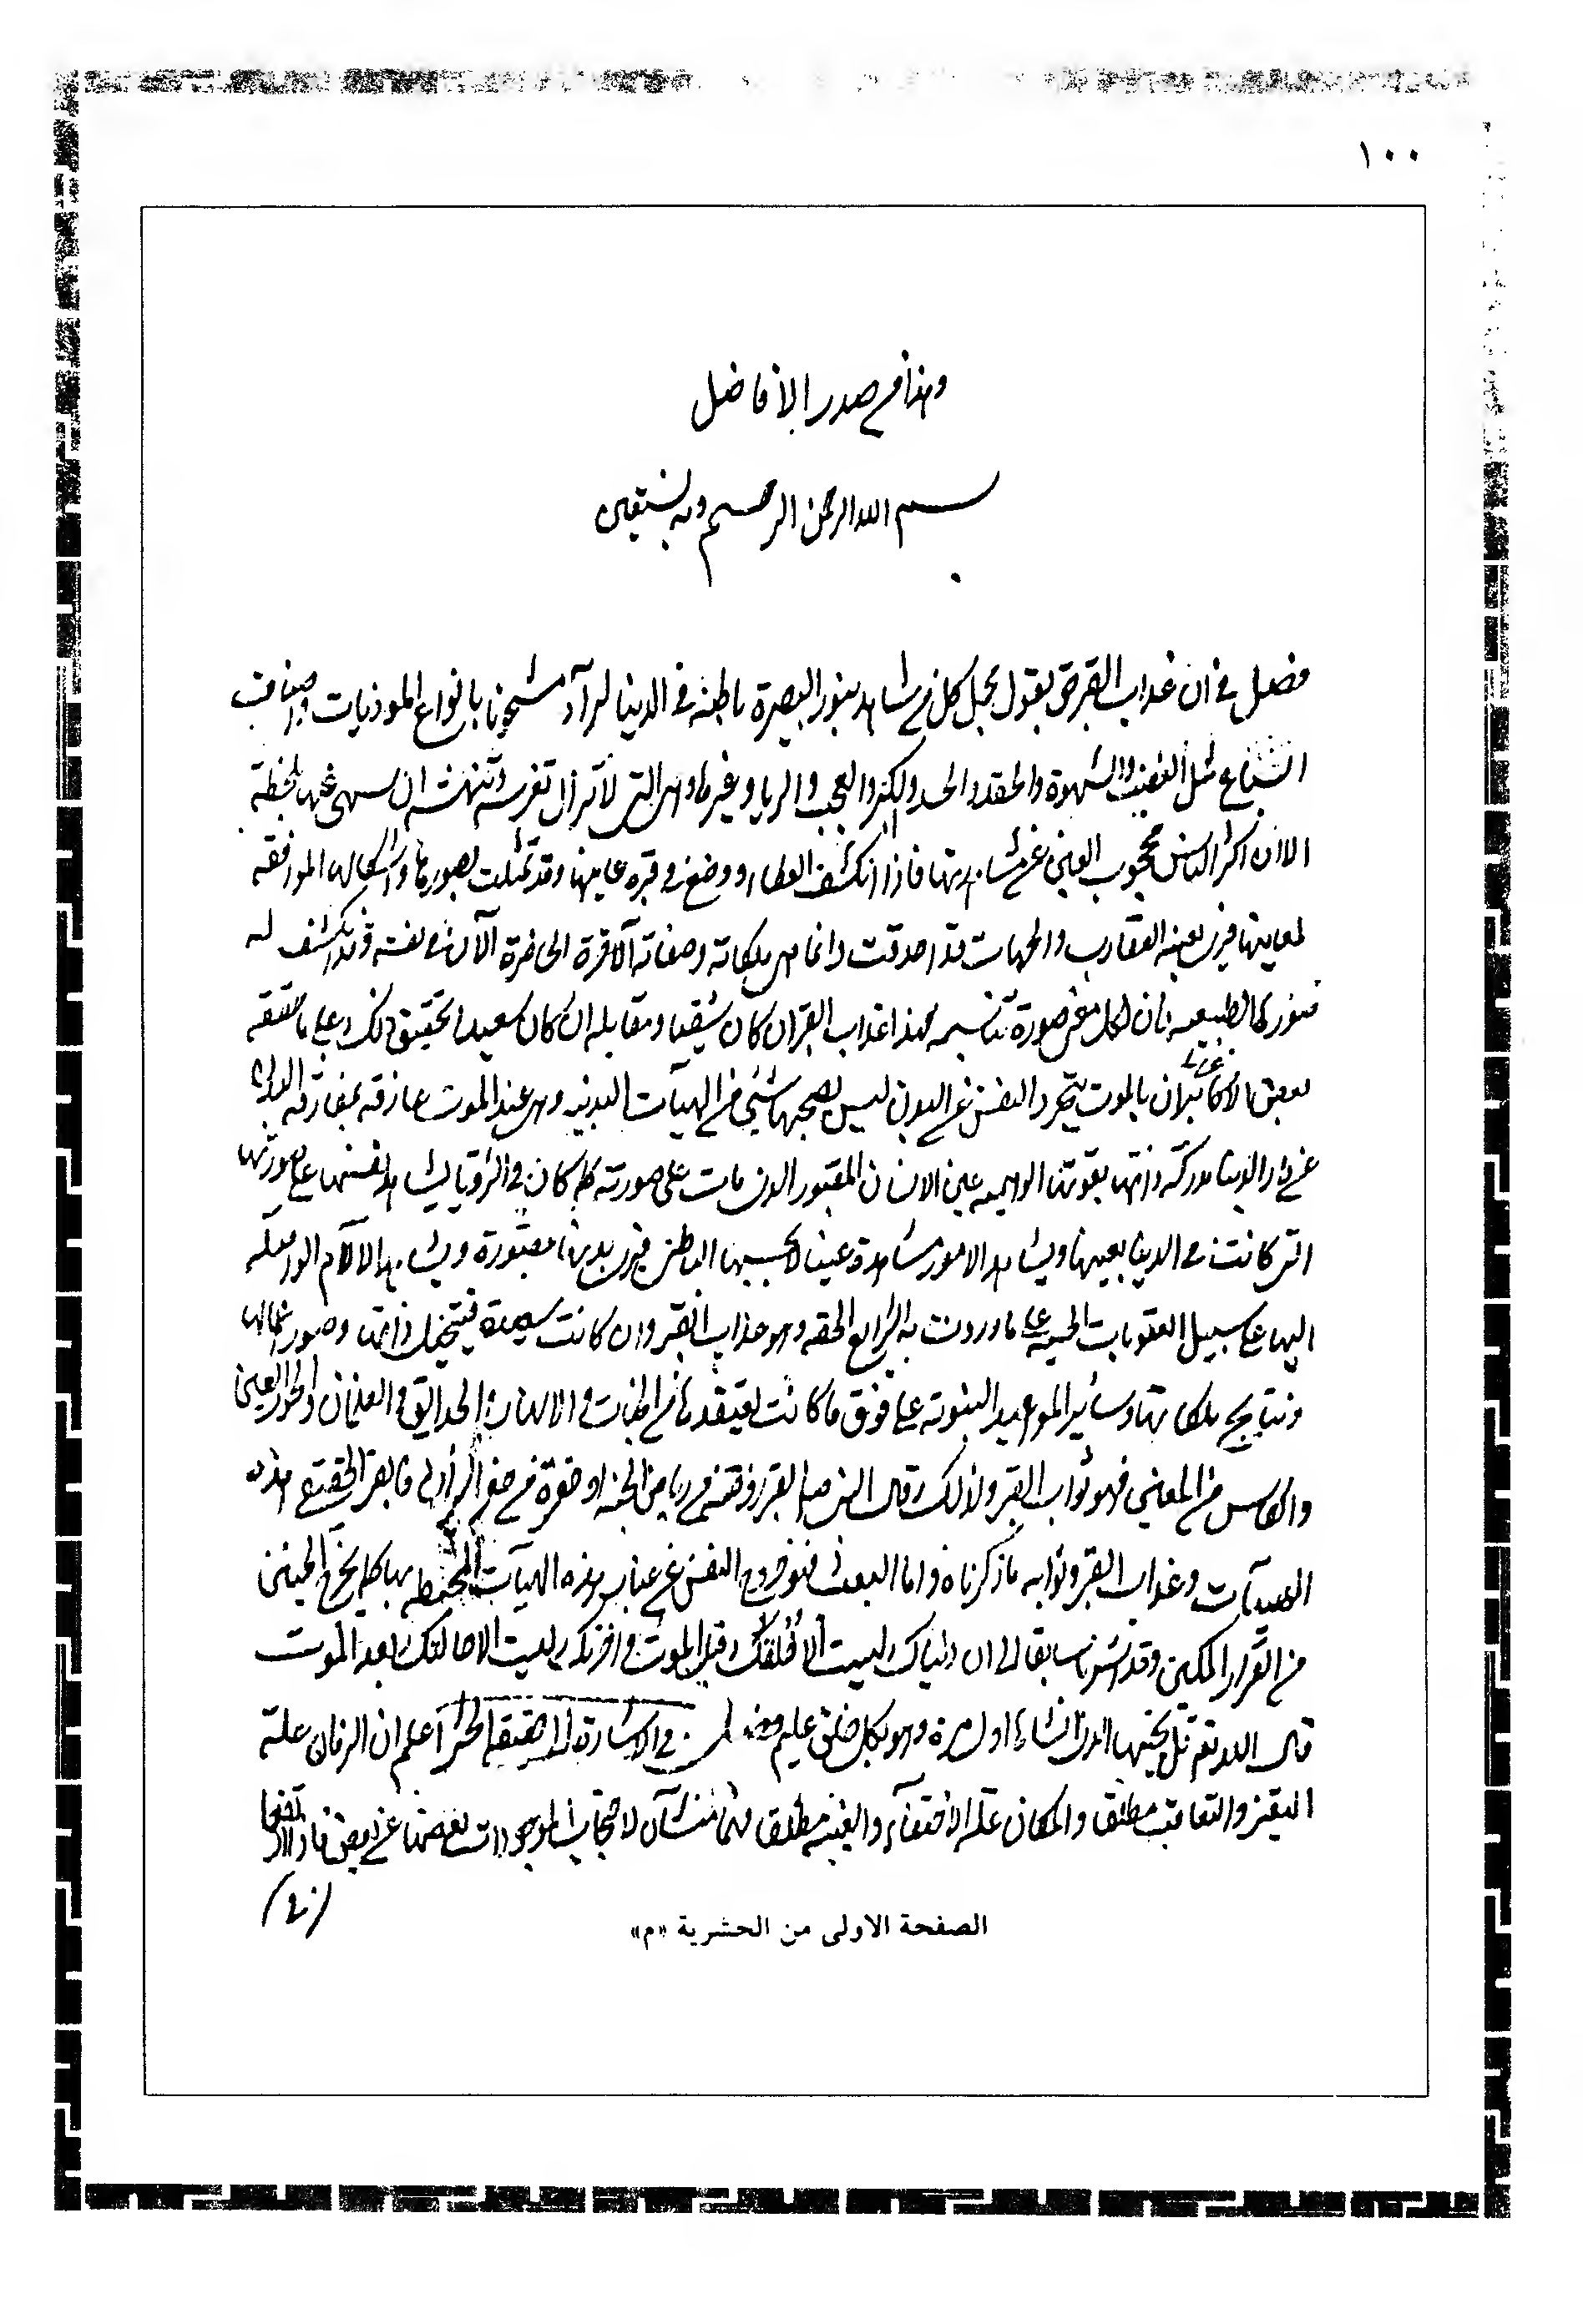 ١٠٠
وهذا من صدر الافاضل
بسم الله الرحمن الرحيم وبه نستعين
فصل في ان عذاب القبر حق بقول مجمل كل من شاهد بنور البصيرة باطنه في الدنيا لرآه مشحونا بانواع الموذيات واصناف
السباع مثل الغضب والشهوة والحقد والحسد والكبر والعجب والريا وغيرها وهي التي لا تزال تفرسه وتنهشه ان سهى عنها بلحظة
الا ان اكثر الناس محجوب العين عن مشاهدتها فاذا انكشف الغطاء ووضع في قبره عاينها وقد تمثلت بصورها واشكالها الموافقه
لمعانيها فيرى بعينه العقارب والحيات قد احدقت وانما هي ملكاته وصفاته الحاضرة الآن في نفسه وقد انكشف له
صورها الطبيعيه فان لكل معنى صورة تناسبه فهذا عذاب القبر ان كان شقيا ومقابله ان كان سعيدا تحقيق ذلك على ما حققه
بعض الاكابر ان بالموت يتجرد النفس عن البدن ليس يصحبها شيئ من الهيآت البدنيه وهي عند الموت عارفه بمفارقه البدن
عن دار الدنيا مدركه ذاتها بقوتها الوهميه عين الانسان المقبور الذي مات على صورته كما كان في الرؤيا يشاهد نفسها على صورتها
التي كانت في الدنيا بعينها ويشاهد الامور مشاهدة عينا بحسها الباطن فيرى بدنها مقبورة ويشاهد الالآم الواصله
اليها على سبيل العقوبات الحسيه على ما وردت به الشرايع الحقه وهو عذاب القبر وان كانت سعيدة فيتخيل ذاتها وصور اعمالها
ونتايج ملكاتها وساير المواعيد النبوته على فوق ما كانت يعتقدها من الجنات والانهار والحدائق والغلمان والحور العين
والكاس من المعين فهو ثواب القبر ولذلك قال النبي ص القبر روضة من رياض الجنه او حفرة من حفر النيران فالقبر الحقيقي هذه
الهيآت وعذاب القبر وثوابه ما ذكرناه واما البعث فهو خروج النفس عن غبار هذه الهيآت المحيطه بها كما يخرج الجنين
من القرار المكين وقد اشرنا سابقا الى ان دنياك ليست الا حالتك قبل الموت واخرتك ليست الا حالتك بعد الموت
قال الله تع قل يحييها الذي انشاها اول مرة وهو بكل خلق عليم فصل في الاشارة الى حقيقه الحشر اعلم ان الزمان علة
التغير والتعاقب مطلقا والمكان علة الاختفاء والغيبه مطلقا فهما منشآن لاحتجاب الموجودات بعضها عن بعض فاذا ارتفعا
الصفحة الاولى من الحشرية «م»